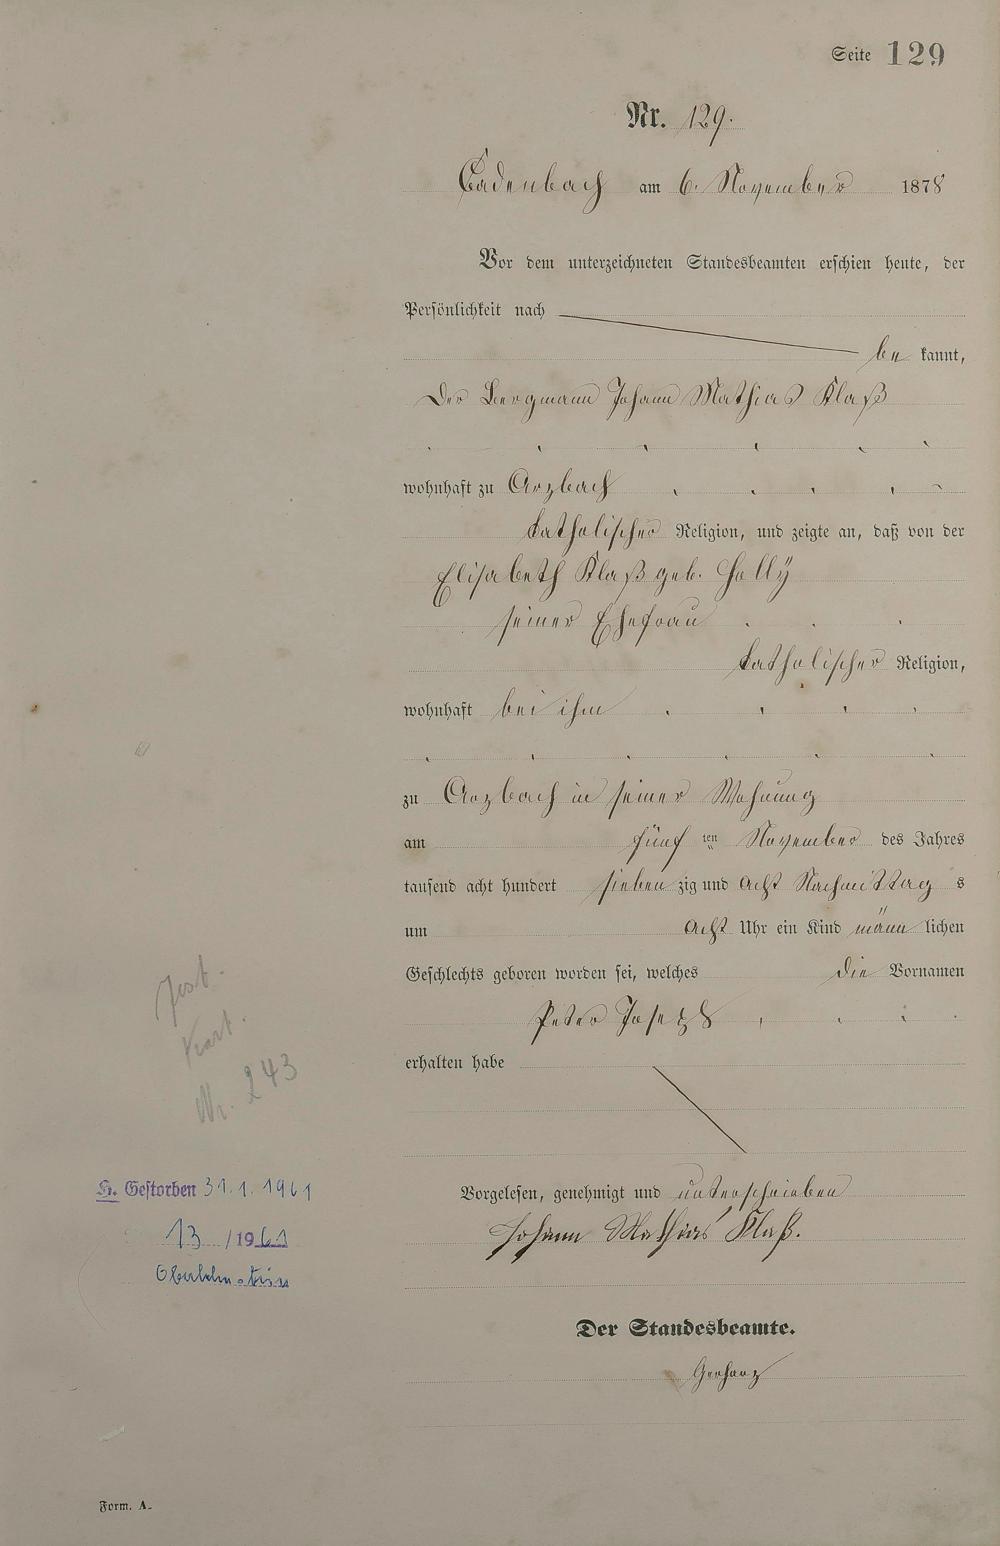 Seite 129
Nr. 129.
Cadenbach am 6. November 1878
Vor dem unterzeichneten Standesbeamten erschien heute, der
Persönlichkeit nach
be kannt,
der Bergmann Johann Mathias Klaß
wohnhaft zu Arzbach
katholischer Religion, und zeigte an, daß von der
Elisabeth Klaß geb. Holly
seiner Ehefrau
katholischer Religion,
wohnhaft bei ihm
zu Arzbach in seiner Wohnung
am fünf ten November des Jahres
tausend acht hundert sieben zig und acht Nachmittag s
um acht Uhr ein Kind männ lichen
Geschlechts geboren worden sei, welches die Vornamen
Peter Joseph
erhalten habe
Nr. 243
H. Gestorben 31.1.1961
13 /1961
Vorgelesen, genehmigt und unterschrieben
Johann Mathias Klaß.
Der Standesbeamte.
Gerharz
Form. A.